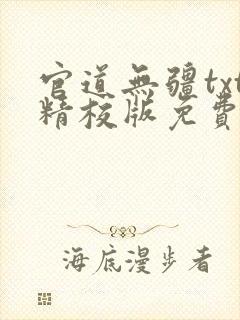 官道無疆txt
精校版免費
海底漫步者